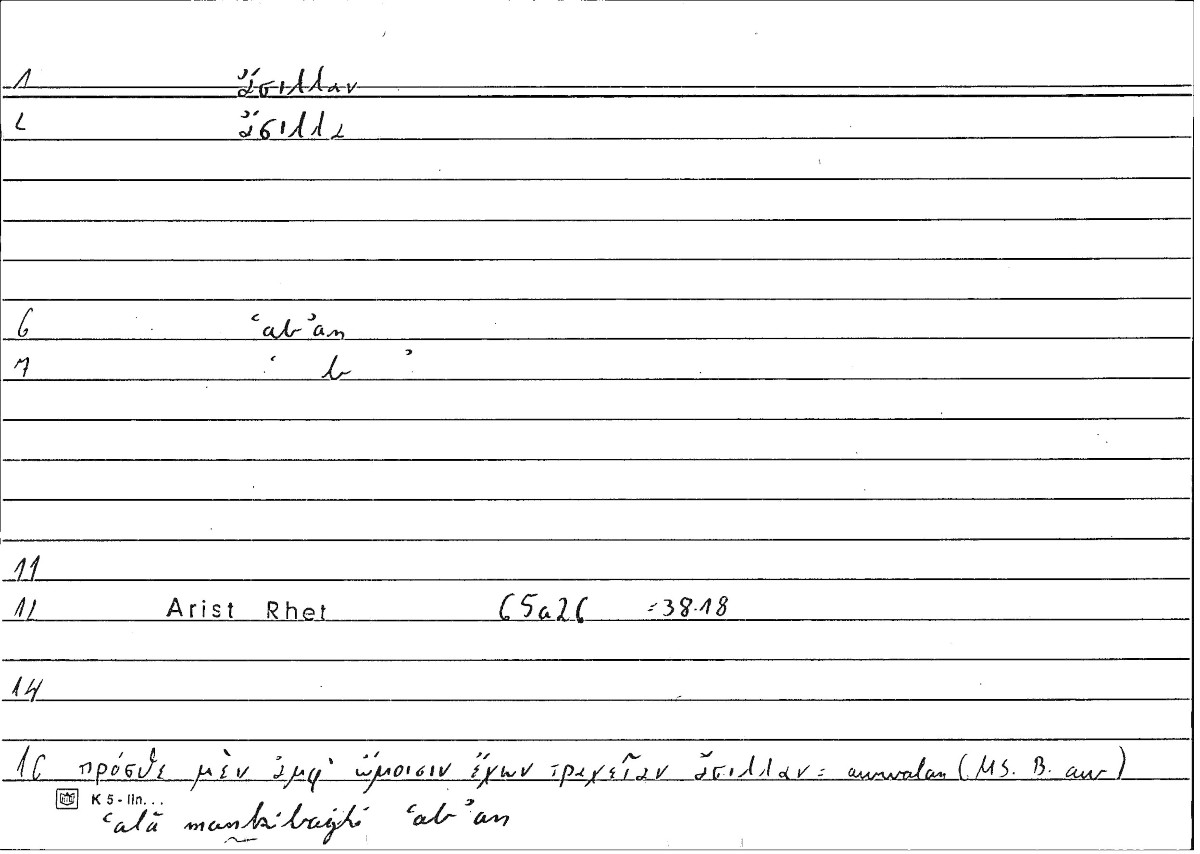 1 ἄσιλλαν
2 ἄσιλλα
6 ʿabʾan
7 ʿ b ʾ
11
12 Arist Rhet 65a26 =38.18
14
16 πρόσθε μὲν ἀμφ' ὤμοισιν ἔχων τραχεῖαν ἄσιλλαν = awwalan (MS. B. aw)
K 5 - lin...
ʿalā mankibaihi ʿabʾan